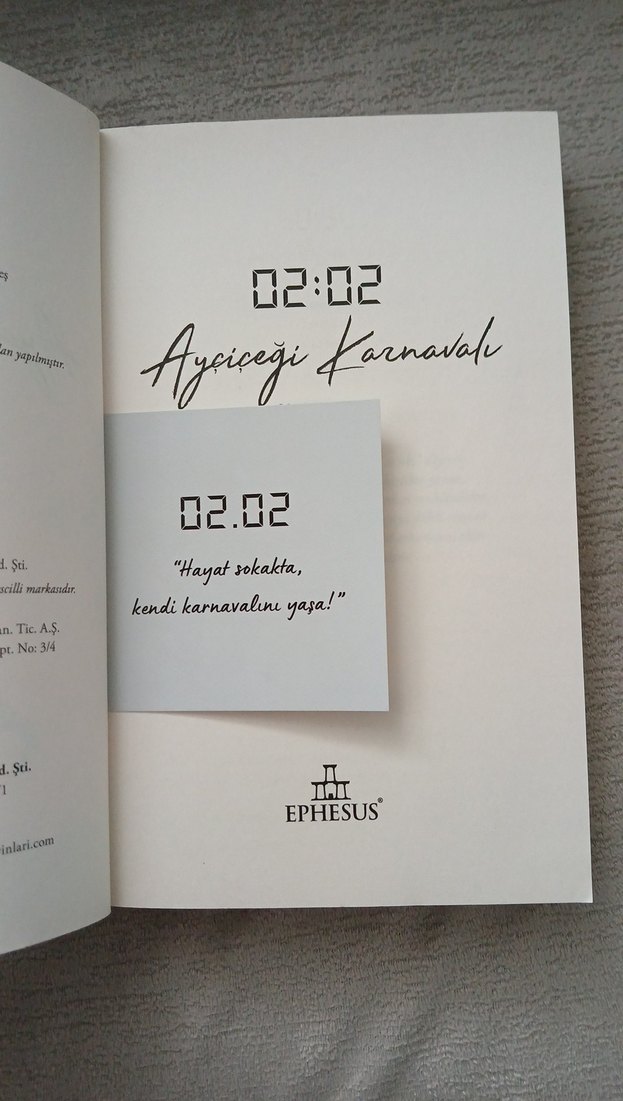 eş
lan yapılmıştır.
d. Şti.
scilli markasıdır.
an. Tic. A.Ş.
pt. No: 3/4
d. Şti.
/1
inlari.com
02:02
Ayçiçeği Karnavalı
02.02
“Hayat sokakta,
kendi karnavalını yaşa!”
EPHESUS®